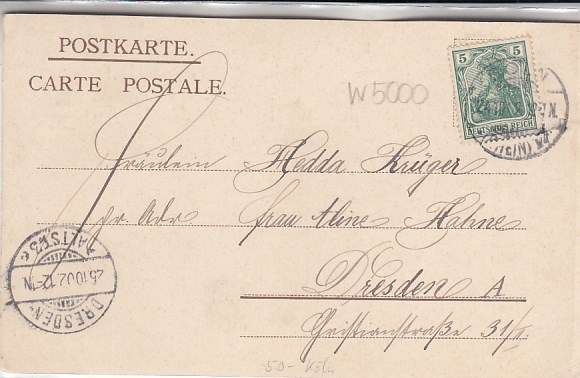 POSTKARTE.
CARTE POSTALE.
W5000
5 5
DEUTSCHES REICH
Fräulein Hedda Krüger
pr. Adr. Frau Aline Hahne
Dresden A
Christianstraße 31/I
DRESDEN-ALTST. 3 e
25.10.02. 12-1N.
50- Köln